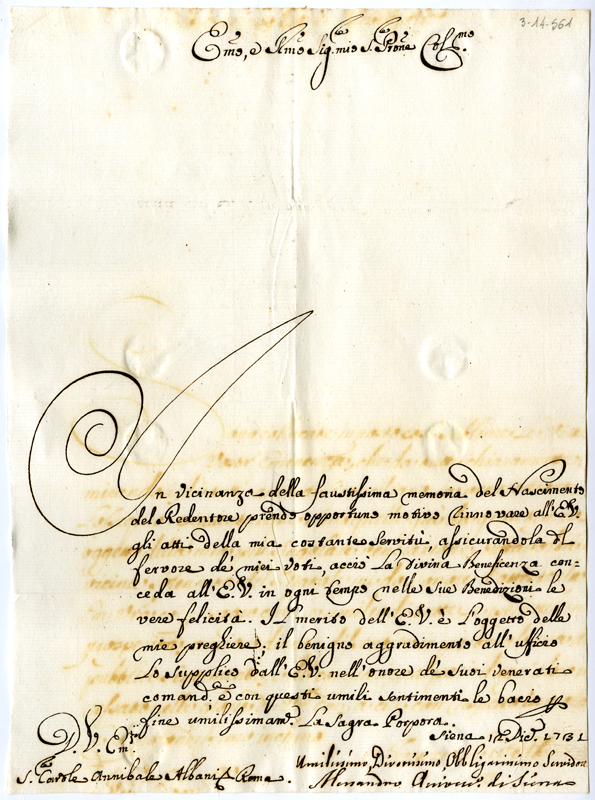 3-14-561
Em̃o, e Rm̃o Sig.re mio S. Prone Col.mo
In vicinanza della faustissima memoria del Nascimento
del Redentore prendo opportuno motivo rinnovare all'E.V.
gli atti della mia costante servitù, assicurandola del
fervore de' miei voti, acciò La Divina Beneficenza con=
ceda all'E.V. in ogni tempo nelle Sue Benedizioni le
vere felicità. Il merito dell'E.V. è l'oggetto delle
mie preghiere; il benigno aggradimento all'ufficio
Lo Supplico dall'E.V. nell'onore de' Suoi venerati
comand. e con questi umili sentimenti le bacio
fine umilissimam.e La Sagra Porpora.
Siena 12 Dic. 1731
D. V. Em.
Umilissimo, Divotissimo, Obbligatissimo Servidore
S. Cardle Annibale Albani Roma.
Alessandro Arcives.o di Siena